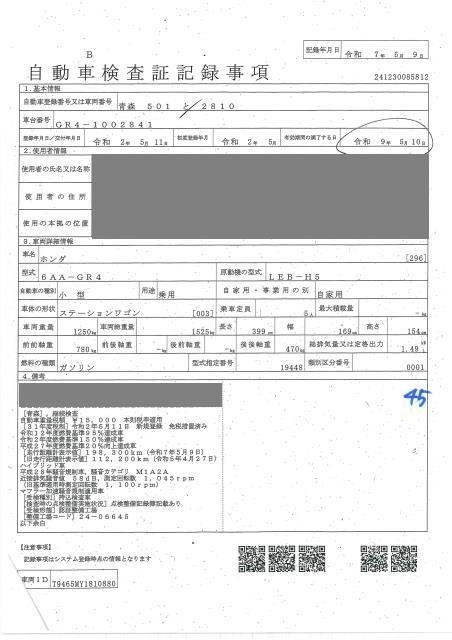 記録年月日 令和 7年 5月 9日
B
自動車検査証記録事項
241230085812
1.基本情報
自動車登録番号又は車両番号 青森 501 と 2810
車台番号 GR4-1002841
登録年月日／交付年月日 令和 2年 5月 11日 初度登録年月 令和 2年 5月 有効期間の満了する日 令和 9年 5月 10日
2.使用者情報
使用者の氏名又は名称
使用者の住所
使用の本拠の位置
3.車両詳細情報
車名 ホンダ [296]
型式 6AA-GR4 原動機の型式 LEB-H5
自動車の種別 小 型 用途 乗用 自家用・事業用の別 自家用
車体の形状 ステーションワゴン [003] 乗車定員 5人 最大積載量 -kg
車両重量 1250kg 車両総重量 1525kg 長さ 399cm 幅 169cm 高さ 154cm
前前軸重 780kg 前後軸重 -kg 後前軸重 -kg 後後軸重 470kg 総排気量又は定格出力 1.49 kW L
燃料の種類 ガソリン 型式指定番号 19448 類別区分番号 0001
4.備考
45
[青森]，継続検査
自動車重量税額 ￥15,000 本則税率適用
[31年度税制] 令和2年5月11日 新規登録 免税措置済み
令和12年度燃費基準95%達成車
令和2年度燃費基準150%達成車
平成27年度燃費基準20%向上達成車
[走行距離計表示値] 198,300km (令和7年5月9日)
[旧走行距離計表示値] 112,200km (令和5年4月27日)
ハイブリッド車
平成28年騒音規制車，騒音カテゴリ M1A2A
近接排気騒音値 58dB，測定回転数 1,045rpm
(旧基準適用時測定回転数 1,100rpm)
マフラー加速騒音規制適用車
[受検種別] 持込検査車
[検査時の点検整備実施状況] 点検整備記録簿記載あり
[受検形態] 認証整備工場
[整備工場コード] 24-06645
以下余白
【注意事項】
記録事項はシステム登録時点の情報となります
車両ID T9465MY1810880